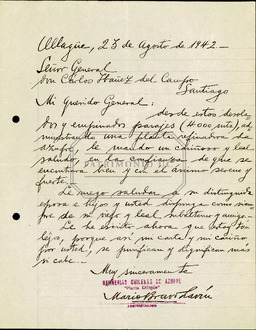 Ollagüe, 27 de Agosto de 1942-
Señor General
Don Carlos Ibañez del Campo
Santiago
Mi Querido General:
desde estos desola
dos y empinados parajes (4.000 mts), ad
ministrando una planta refinadora de
azufre, le mando un cariñoso y leal
saludo, en la confianza de que se
encuentra bien y con el animo sereno y
fuerte.
Le ruego saludar a su distinguida
esposa e hijos y usted disponga como siem
pre de su viejo y leal subalterno y amigo.
Le he escrito ahora que estoy tan
lejos, porque asi mi carta y mi cariño
por usted, se purifican y dignifican más
si cabe.-
Muy sinceramente
CHILENAS DE AZUFRE
"Planta Ollagüe"
Mario Bravo Lavín
ADMINISTRADOR